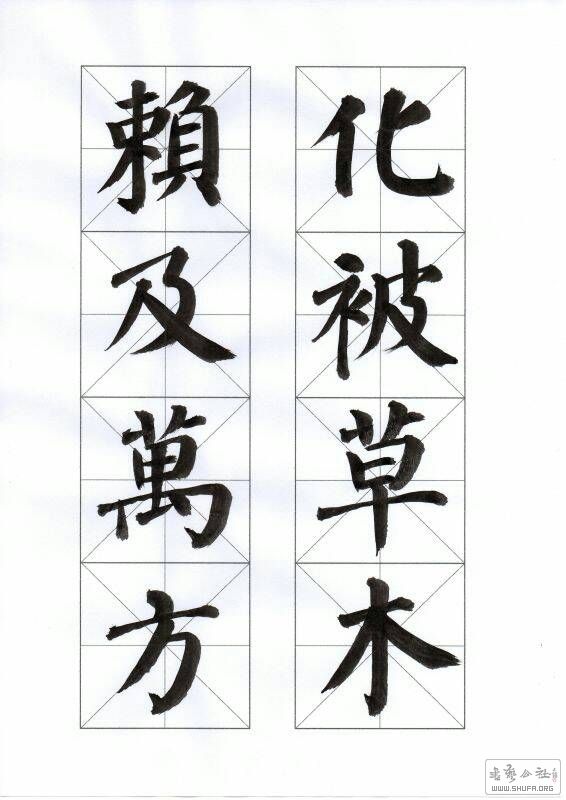 化被草木
賴及萬方
WWW.SHUFA.ORG